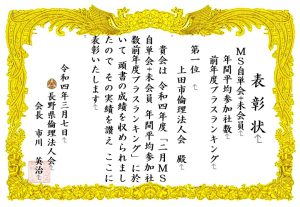 表彰状
MS自単会+未会員
年間平均参加社数
前年度プラスランキング
第一位
上田市倫理法人会 殿
貴会は 令和四年度「二月MS
自単会+未会員 年間平均参加社
数前年度プラスランキング」に於
いて 頭書の成績を収められまし
たので その実績を讃え ここに
表彰いたします
令和四年三月七日
長野県倫理法人会
会長 市川 英治